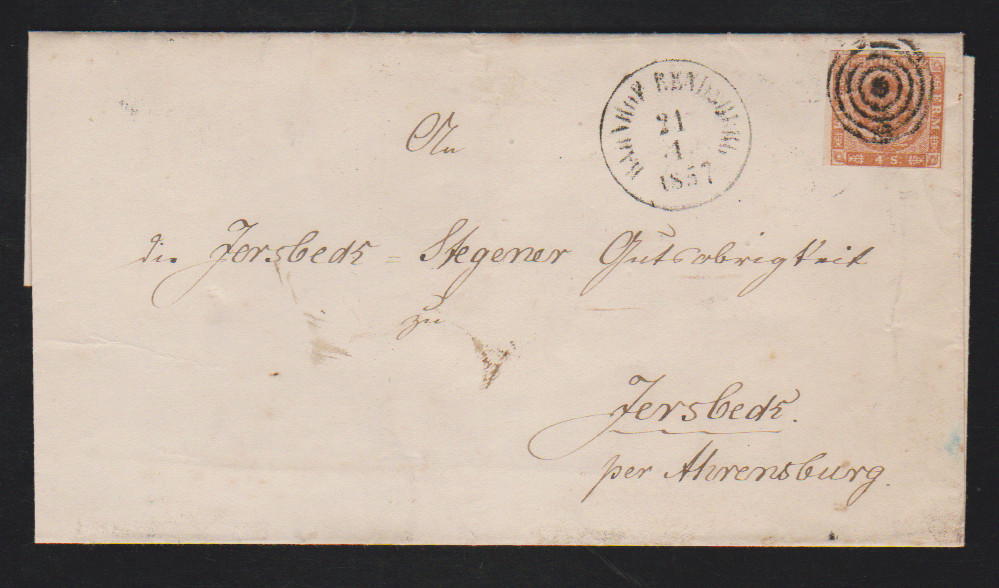 BAHNHOF RENDSBURG
21
1
1857
FRM
4 S.
An
die Jersbeck = Stegener Gutsobrigkeit
zu
Jersbeck.
per Ahrensburg.